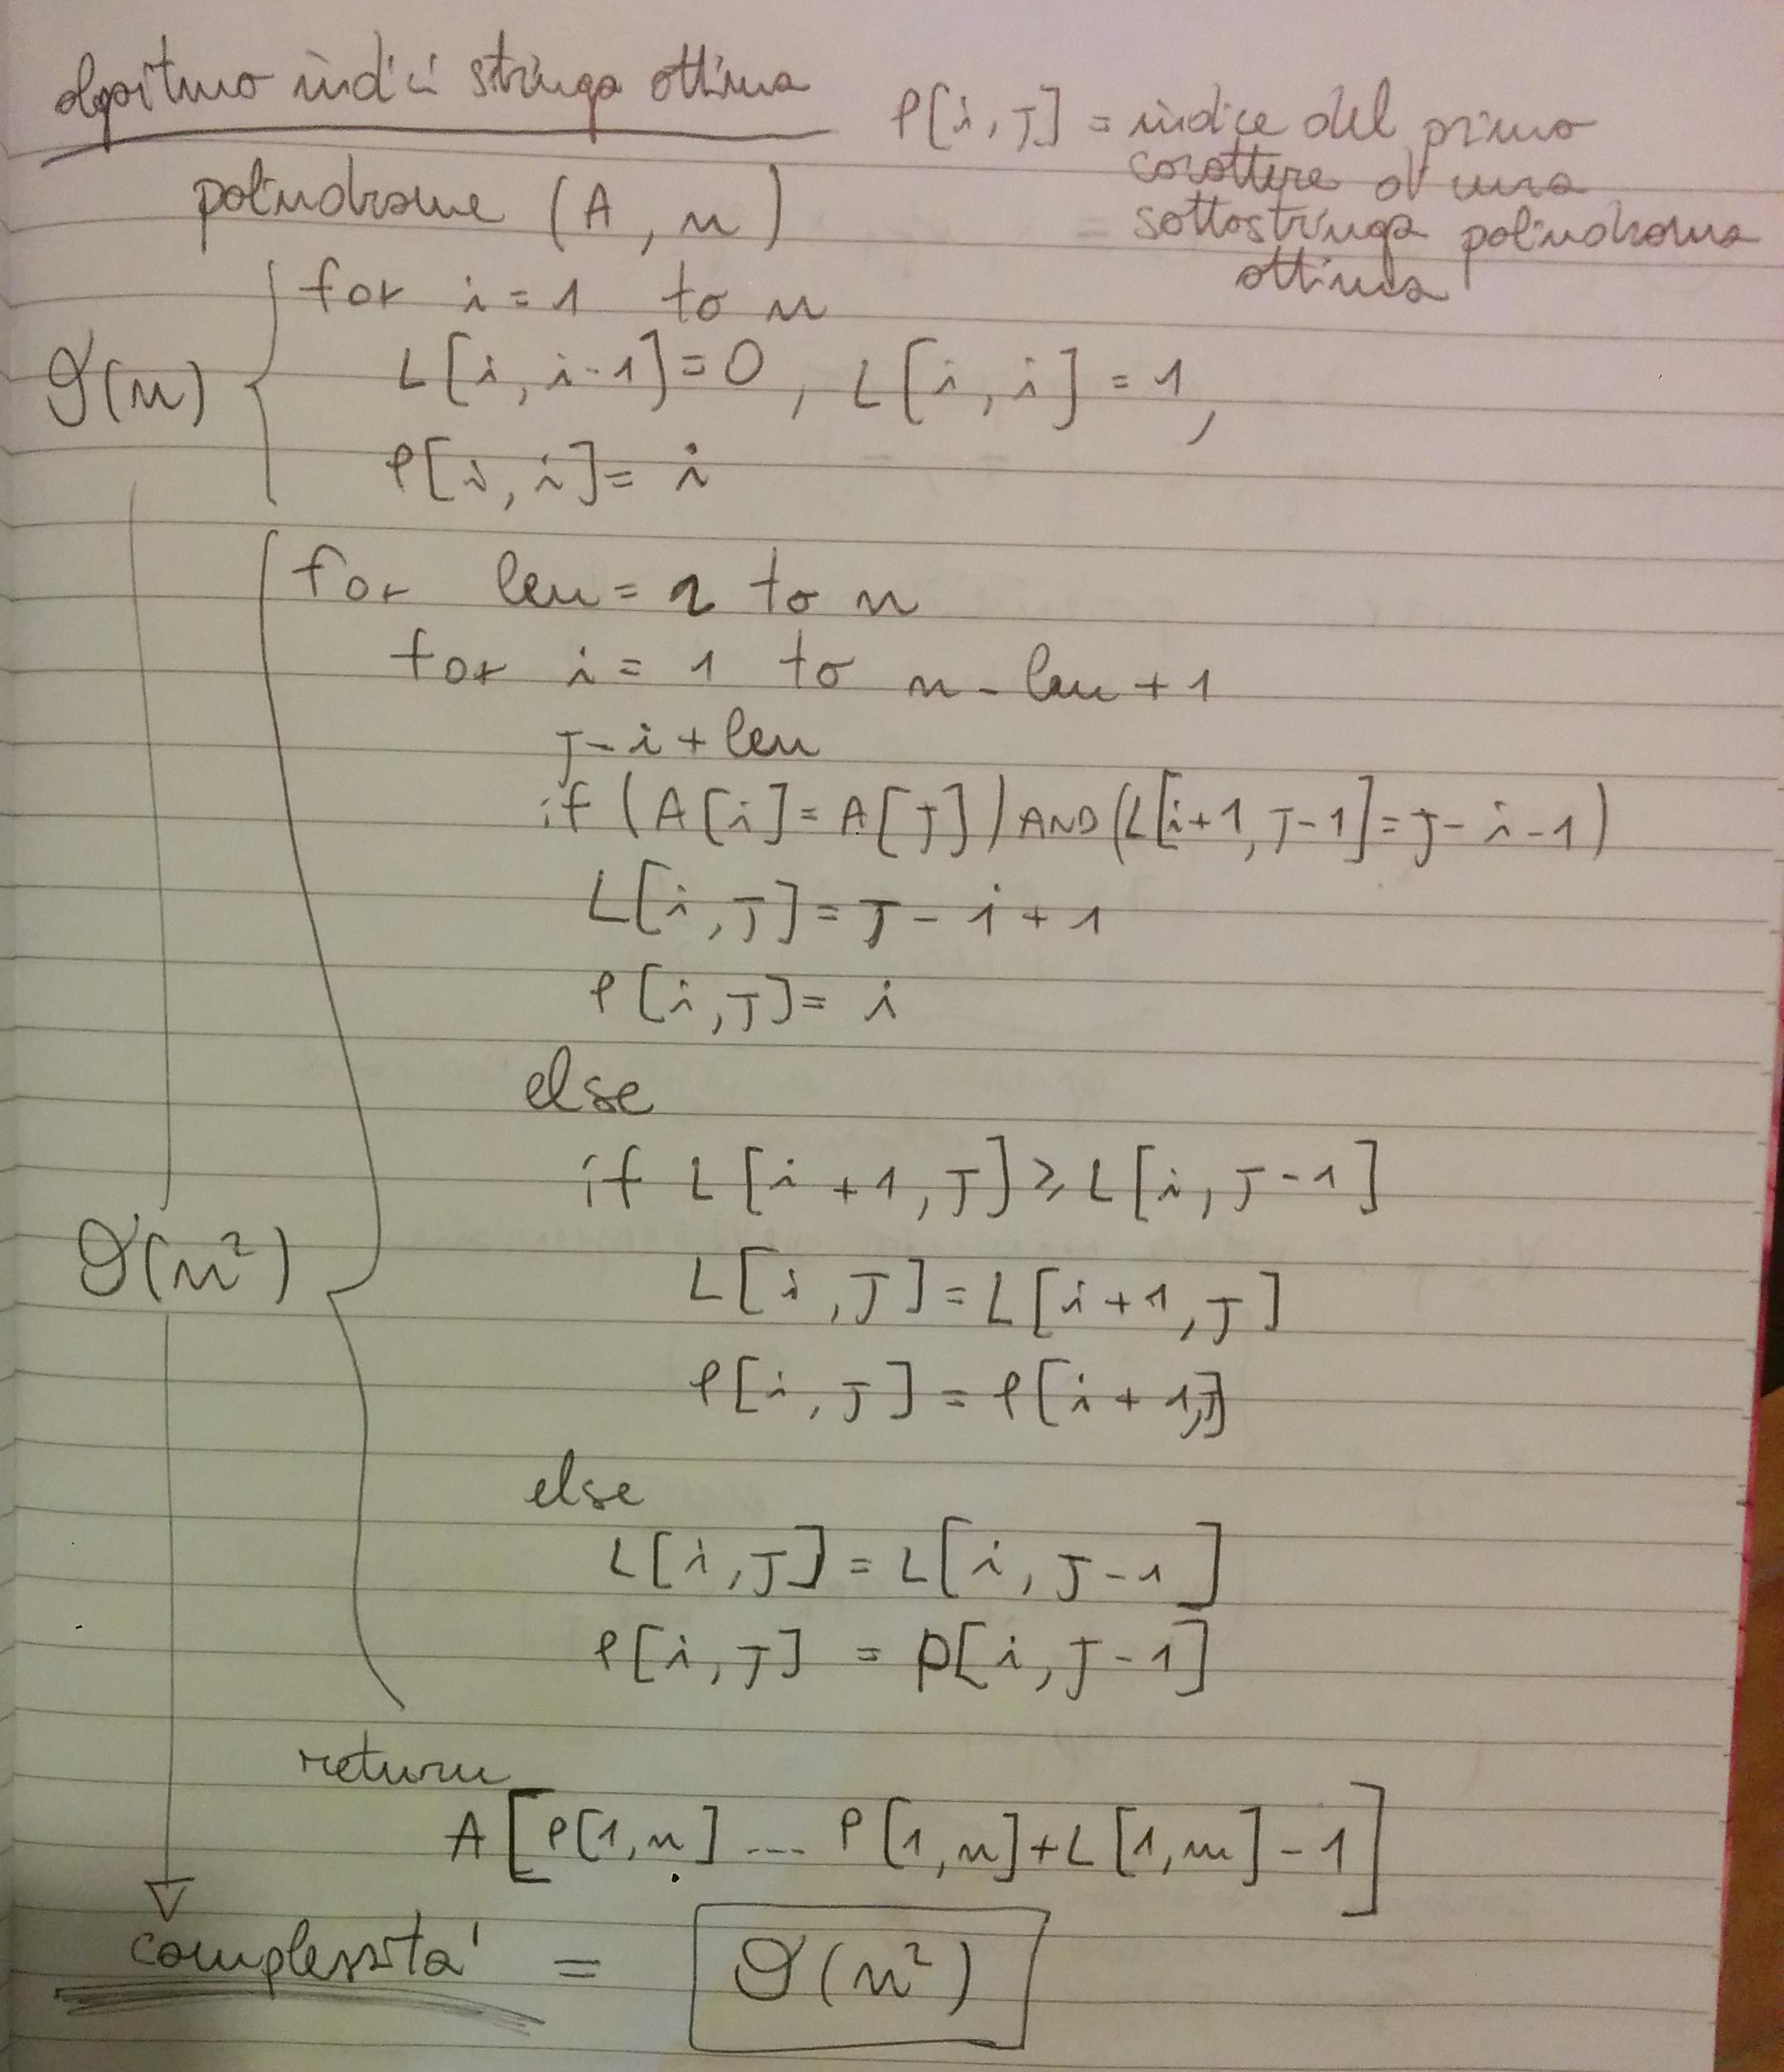 algoritmo indici stringa ottima
P[i, J] = indice del primo
carattere di una
= sottostringa palindroma
ottima
palindrome (A, n)
for i = 1 to n
ϑ(n)
L[i, i-1] = 0, L[i, i] = 1,
P[i, i] = i
for len = 2 to n
for i = 1 to n - len + 1
J - i + len
if (A[i] = A[J]) AND (L[i+1, J-1] = J - i - 1)
L[i, J] = J - i + 1
P[i, J] = i
else
if L[i+1, J] ≥ L[i, J-1]
ϑ(n²)
L[i, J] = L[i+1, J]
P[i, J] = P[i+1, J]
else
L[i, J] = L[i, J-1]
P[i, J] = P[i, J-1]
return
A[P[1, n] ... P[1, n] + L[1, n] - 1]
complessita' = ϑ(n²)